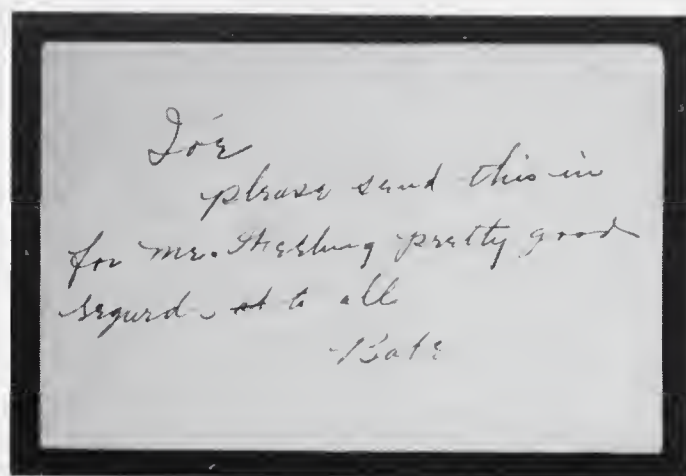 Joe
please send this in
for me. Feeling pretty good
regard to all
Babe